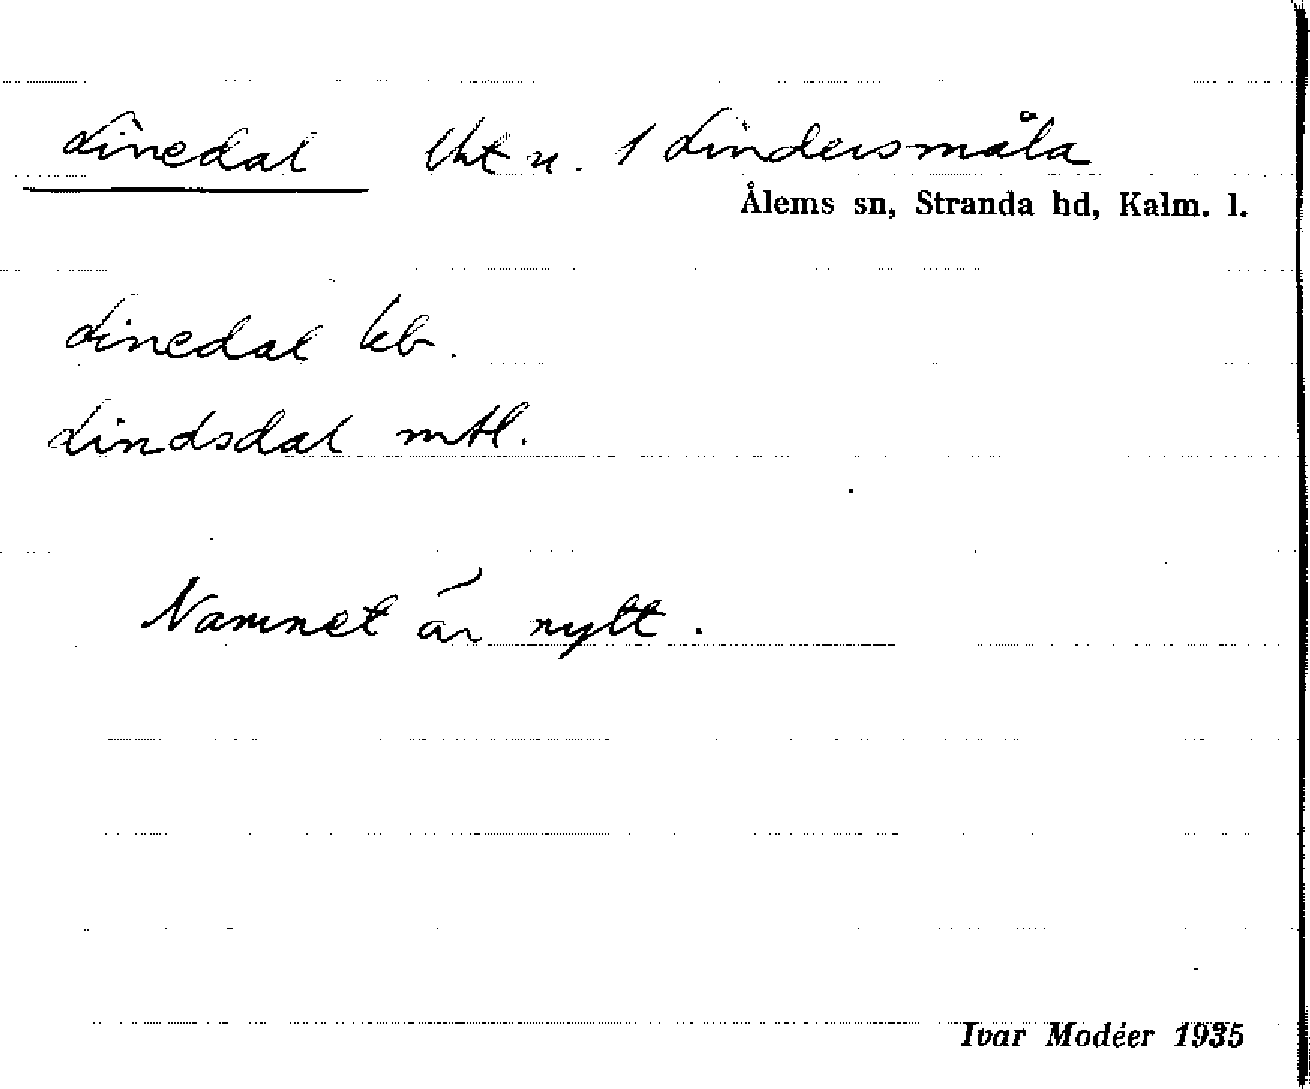 Linedal lht u. 1 Lindersmåla
Ålems sn, Stranda hd, Kalm. l.
Linedal kb.
Lindsdal mtl.
Namnet är nytt.
Ivar Modéer 1935